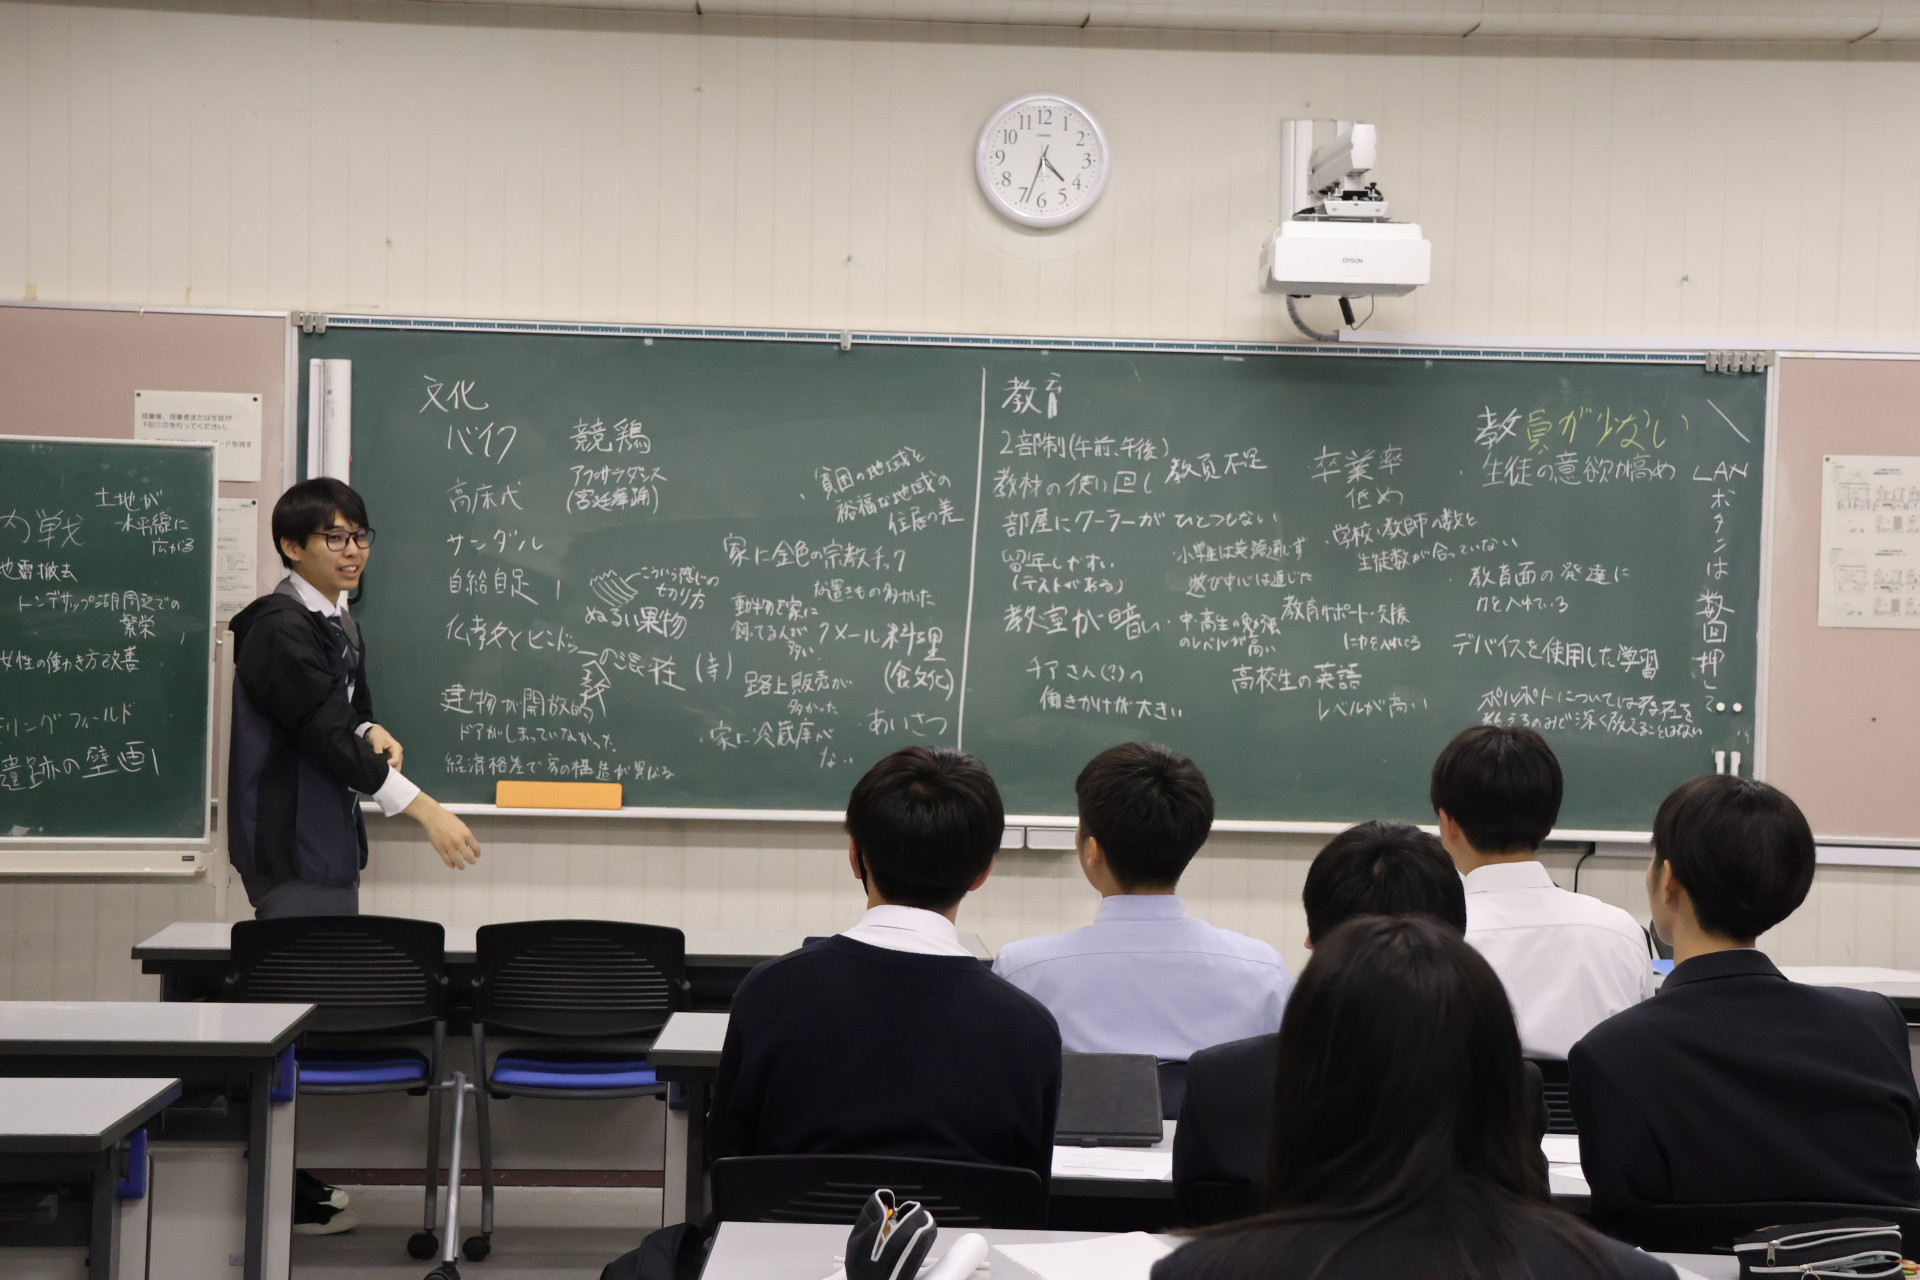 土地が
水平線に
広がる
戦
地雷撤去
トンデサップ湖周辺での
繁栄
女性の働き方改善
リングフィールド
遺跡の壁画
文化
バイク
競鶏
高床式
アプサラダンス
(宮廷舞踊)
サンダル
自給自足
こういう感じの
切り方
ぬるい果物
仏教とヒンドゥーの混在(寺)
建物が開放的
ドアがしまっていなかった
経済格差で家の構造が異なる
・貧困の地域と
裕福な地域の
住居の差
家に金色の宗教チック
な置きもの多かった
動物を家に
飼てる人が
多い
クメール料理
(食文化)
路上販売が
多かった
・家に冷蔵庫が
ない
あいさつ
教育
2部制(午前、午後)
教材の使い回し
教員不足
部屋にクーラーがひとつしない
留年しやすい
(テストがある)
教室が暗い
チアさん(?)の
働きかけが大きい
・小学生は英語通じず
遊び中心には通じた
・中・高生の勉強
のレベルが高い
高校生の英語
レベルが高い
卒業率
低め
・学校・教師の数と
生徒数が合っていない
教育サポート・支援
に力を入れてる
教員が少ない
・生徒の意欲が高め
・教育面の発達に
力を入れている
デバイスを使用した学習
ポルポトについては存在を
教えるのみで深く教えることはない
LANボタンは数回押して
12
1
2
3
4
5
6
7
8
9
10
11
CASIO
EPSON